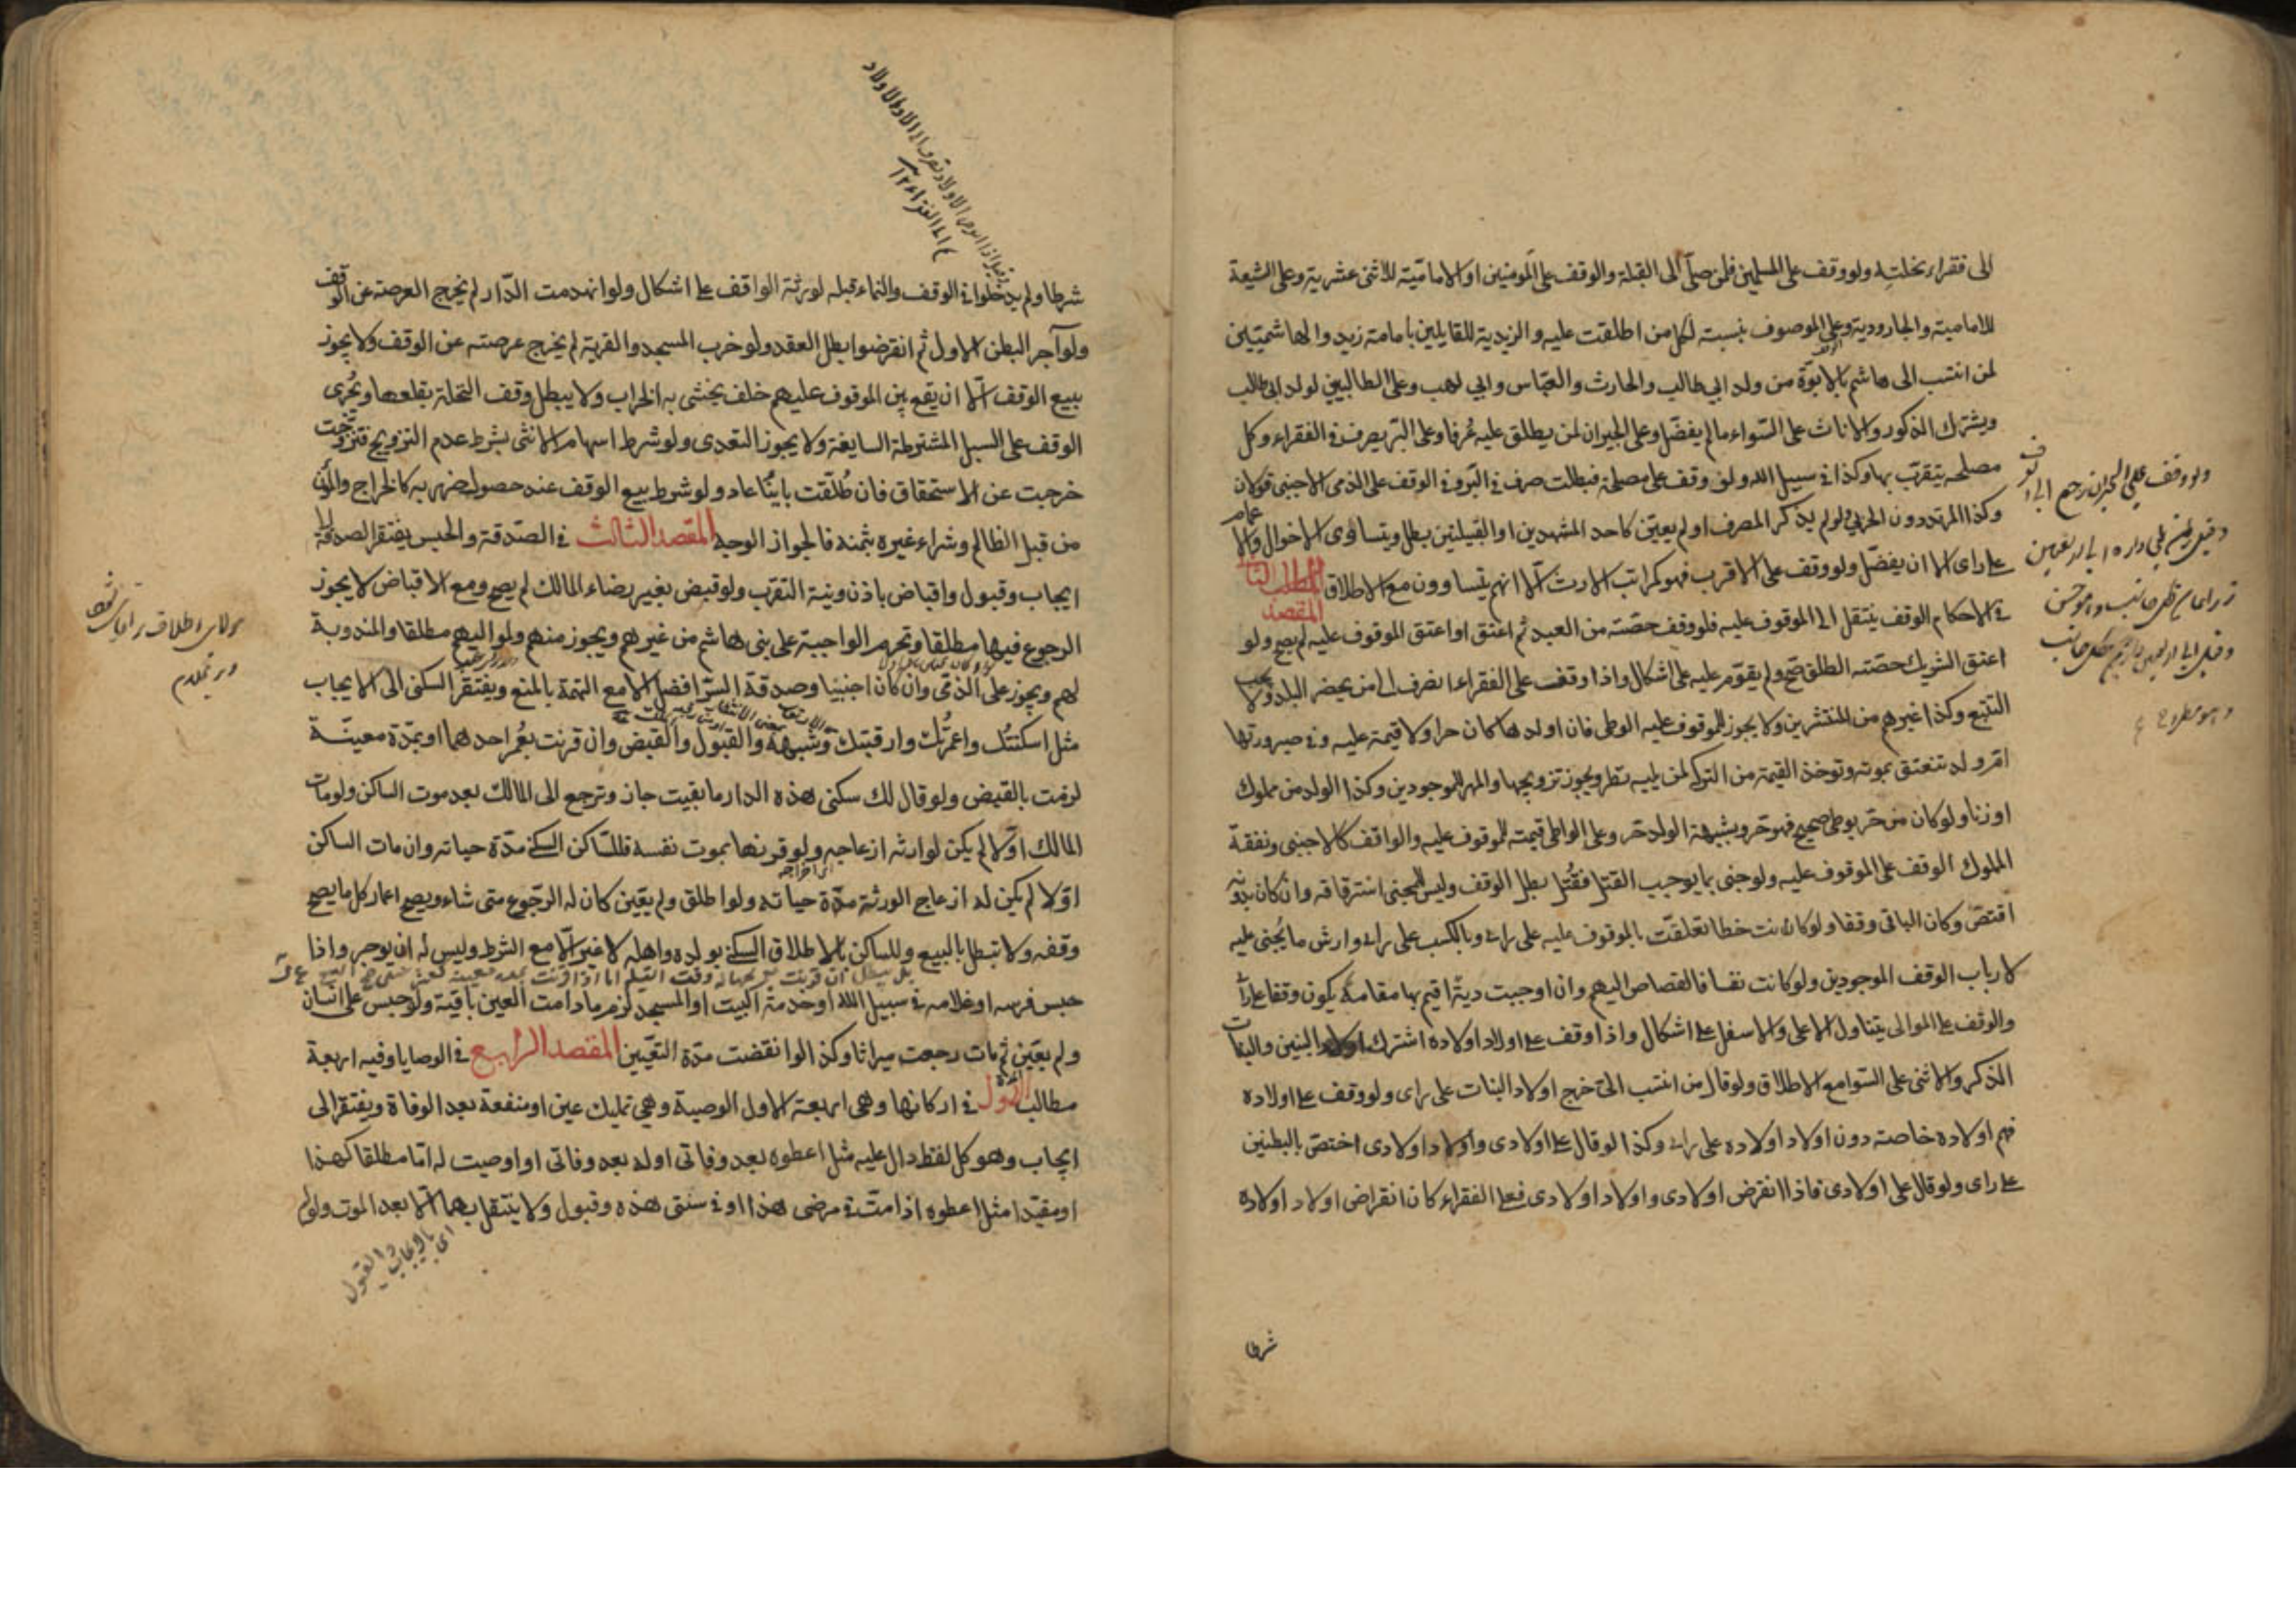 الى فقراء نحلته ولو وقف على المسلمين فلمن صلى الى القبلة والوقف على المومنين او الامامية للاثنى عشرية وعلى الشيعة
للامامية والجارودية وعلى الموصوف بنسبته لكل من اطلقت عليه والزيدية للقايلين بامامة زيد والهاشميين
لمن انتسب الى هاشم بالابوة من ولد ابي طالب والحارث والعباس وابي لهب وعلى الطالبيين لولد ابي طالب
ويشترك الذكور والاناث على السواء ما لم يفضل وعلى الجيران لمن يطلق عليه عرفا وعلى البر يصرف في الفقراء وكل
مصلحه يتقرب بها وكذا في سبيل الله ولو وقف على مصلحة فبطلت صرف في البر وفي الوقف على الذمى الاجنبى قولان
وكذا المرتد دون الحربي ولو لم يذكر المصرف او لم يعين كاحد المشهدين او القبيلتين بطل ويتساوى الاخوال والاعمام
على راى الا ان يفضل ولو وقف على الاقرب فهو كمراتب الارث الا انهم يتساوون مع الاطلاق المطلب الثا
المقصد
في الاحكام الوقف ينتقل الى الموقوف عليه فلو وقف حصته من العبد ثم اعتق او اعتق الموقوف عليه لم يصح ولو
اعتق الشريك حصته الطلق صح ولم يقوم عليه على اشكال واذا وقف على الفقراء انصرف الى من يحضر البلد ولا يجب
التتبع وكذا غيرهم من المنتشرين ولا يجوز للموقوف عليه الوطى فان اولدها كان حرا ولا قيمة عليه وفي صيرورتها
ام ولد تنعتق بموته وتوخذ القيمة من التركه لمن يليه نظر ويجوز تزويجها والمهر للموجودين وكذا الولد من مملوك
او زنا ولو كان من حر بوطى صحيح فهو حر وبشبهة الولد حر وعلى الواطى قيمته للموقوف عليه والواقف كالاجنبى ونفقة
المملوك الوقف على الموقوف عليه ولو جنى بما يوجب القتل فقتل بطل الوقف وليس للمجنى استرقاقه وان كان بدونه
اقتص وكان الباقى وقفا ولو كانت خطا تعلقت بالموقوف عليه على راى وبالكسب على راى وارش ما يجنى عليه
لارباب الوقف الموجودين ولو كانت نفسا فالقصاص اليهم وان اوجبت دية اقيم بها مقامه يكون وقفا على راى
والوقف على الموالى يتناول الاعلى والاسفل على اشكال واذا وقف على اولاد اولاده اشترك اولاد البنين والبنات
الذكر والانثى على السوا مع الاطلاق ولو قال من انتسب الى خرج اولاد البنات على راى ولو وقف على اولاده
فهم اولاده خاصته دون اولاد اولاده على راى وكذا لو قال على اولادى واولاد اولادى اختص بالبطنين
على راى ولو قال على اولادى فاذا انقرض اولادى واولاد اولادى فعلى الفقراء كان انقراض اولاد اولاده
شرطا
شرطا ولم يدخلوا في الوقف والنماء قبله لورثة الواقف على اشكال ولو انهدمت الدار لم يخرج العرصة عن الوقف
ولو آجر البطن الاول ثم انقرضوا بطل العقد ولو خرب المسجد والقرية لم يخرج عرصته عن الوقف ولا يجوز
بيع الوقف الا ان يقع بين الموقوف عليهم خلف يخشى به الخراب ولا يبطل وقف النخلة بقلعها ويجرى
الوقف على السبل المشترطة السايغة ولا يجوز التعدى ولو شرط اسهام الانثى بشرط عدم التزويج فتزوجت
خرجت عن الاستحقاق فان طلقت باينا عاد ولو شرط بيع الوقف عند حصول ضرر به كالخراج والمؤن
من قبل الظالم وشراء غيره بثمنه فالجواز الوجه المقصد الثالث في الصدقة والحبس يفتقر الصدقة الى
ايجاب وقبول واقباض باذن ونية التقرب ولو قبض بغير رضاء المالك لم يصح ومع الاقباض لا يجوز
الرجوع فيها مطلقا وتحرم الواجبة على بنى هاشم من غيرهم ويجوز منهم ولمواليهم مطلقا والمندوبة
لهم ويجوز على الذمى وان كان اجنبيا وصدقة السر افضل الا مع التهمة بالمنع ويفتقر السكنى الى الايجاب
مثل اسكنتك واعمرتك وارقبتك وشبهه والقبول والقبض وان قرنت بعمر احدهما او بمدة معينة
لزمت بالقبض ولو قال لك سكنى هذه الدار ما بقيت جاز وترجع الى المالك بعد موت الساكن ولو مات
المالك اولا لم يكن لوارثه ازعاجه ولو قرنها بموت نفسه فللساكن السكنى مدة حياته وان مات الساكن
اولا لم يكن له ازعاج الورثة مدة حياته ولو اطلق ولم يعين كان له الرجوع متى شاء ويصح اعمار كل ما يصح
وقفه ولا تبطل بالبيع وللساكن بالاطلاق السكنى بولده واهله لا غير الا مع الشرط وليس له ان يوجر واذا
حبس فرسه او غلامه في سبيل الله او خدمة البيت او المسجد لزم ما دامت العين باقية ولو حبس على انسان
ولم يعين ثم مات رجعت ميراثا وكذا لو انقضت مدة التعيين المقصد الرابع في الوصايا وفيه اربعة
مطالب الاول في اركانها وهى اربعة الاول الوصية وهي تمليك عين او منفعة بعد الوفاة ويفتقر الى
ايجاب وهو كل لفظ دال عليه مثل اعطوه بعد وفاتى او له بعد وفاتى او اوصيت له اما مطلقا كهذا
او مقيدا مثل اعطوه اذا مت في مرضى هذا او في سنتى هذه وقبول ولا ينتقل بهما الا بعد الموت ولو